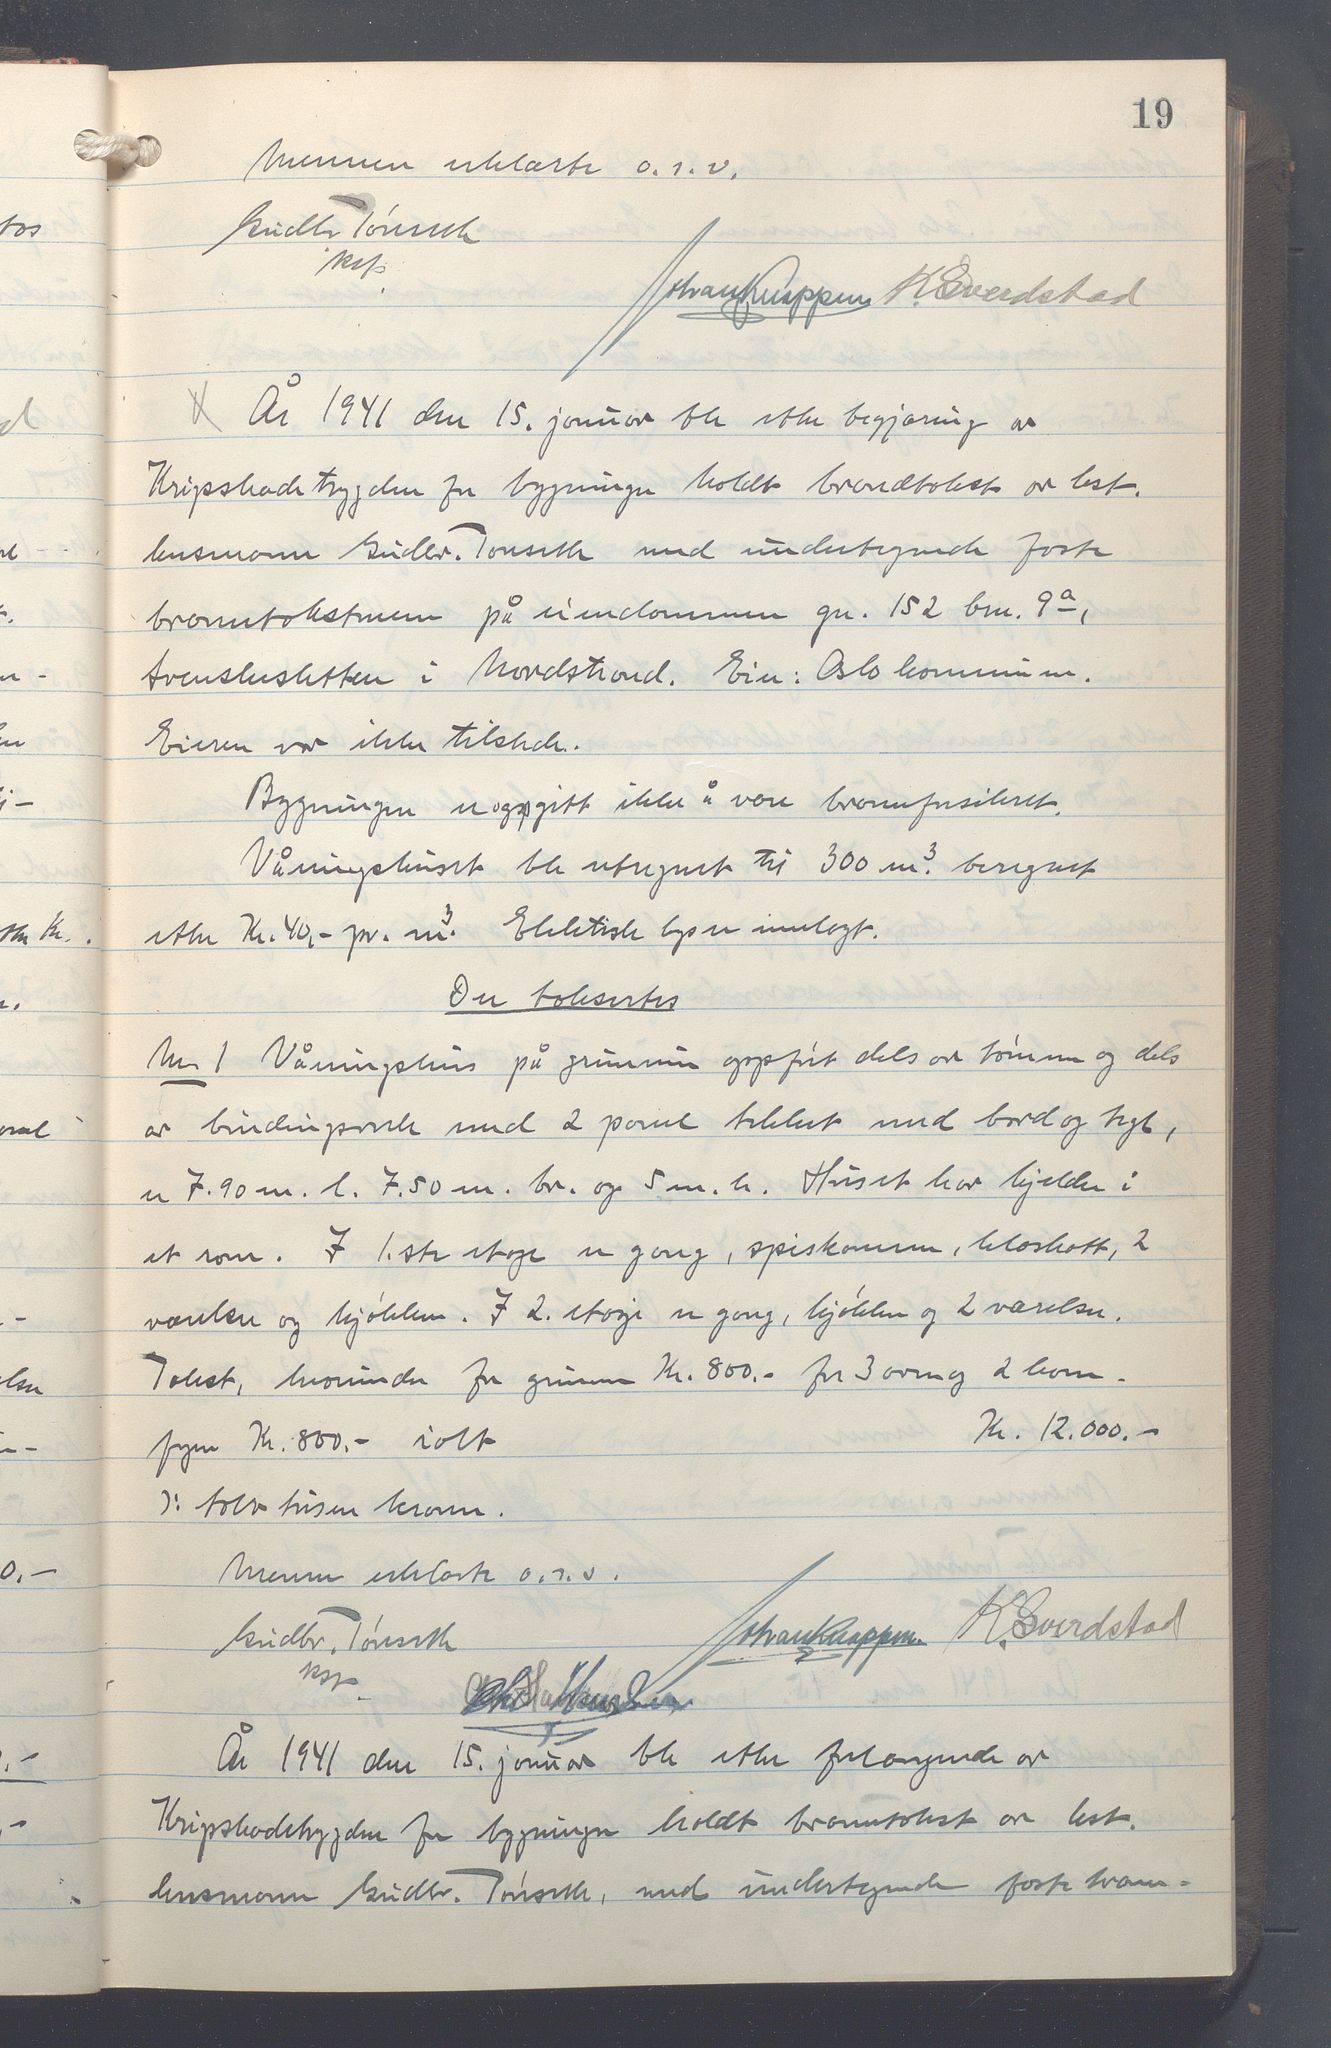 19
Mennen erklærte o.s.v.
Gudbr. Tønseth
ksf.
Johan Knappen K. Sverdstad
År 1941 den 15. januar ble etter begjæring av
Krigsskadetrygden for bygninger holdt branntakst av kst.
lensmann Gudbr. Tønseth med undertegnede faste
branntakstmenn på eiendommen gn. 152 bnr. 9a,
Svenskesletten i Nordstrand. Eier: Oslo kommune.
Eieren var ikke tilstede.
Bygningen er oppgitt ikke å være brannforsikret.
Våningshuset ble utregnet til 300 m3. beregnet
etter Kr. 40,- pr. m3. Elektrisk lys er innlagt.
Der takseres
Nr 1 Våningshus på grunnmur oppført dels av tømmer og dels
av bindingsverk med 2 panel tekket med bord og tegl,
er 7.90 m. l. 7.50 m. br. og 5 m. h. Huset har kjelder i
et rom. I 1.ste etage er gang, spiskammer, kleskott, 2
værelser og kjøkken. I 2. etage er gang, kjøkken og 2 værelser.
Takst, herunder for grunnmur Kr. 800.- for 3 ovner og 2 kom-
fyrer Kr. 800.- ialt Kr. 12.000.-
ɔ: tolv tusen kroner.
Mennen erklærte o.s.v.
Gudbr. Tønseth Johan Knappen. K. Sverdstad
ksf.
År 1941 den 15. januar ble etter forlangende av
Krigsskadetrygden for bygninger holdt branntakst av kst.
lensmann Gudbr. Tønseth, med undertegnede faste brann-